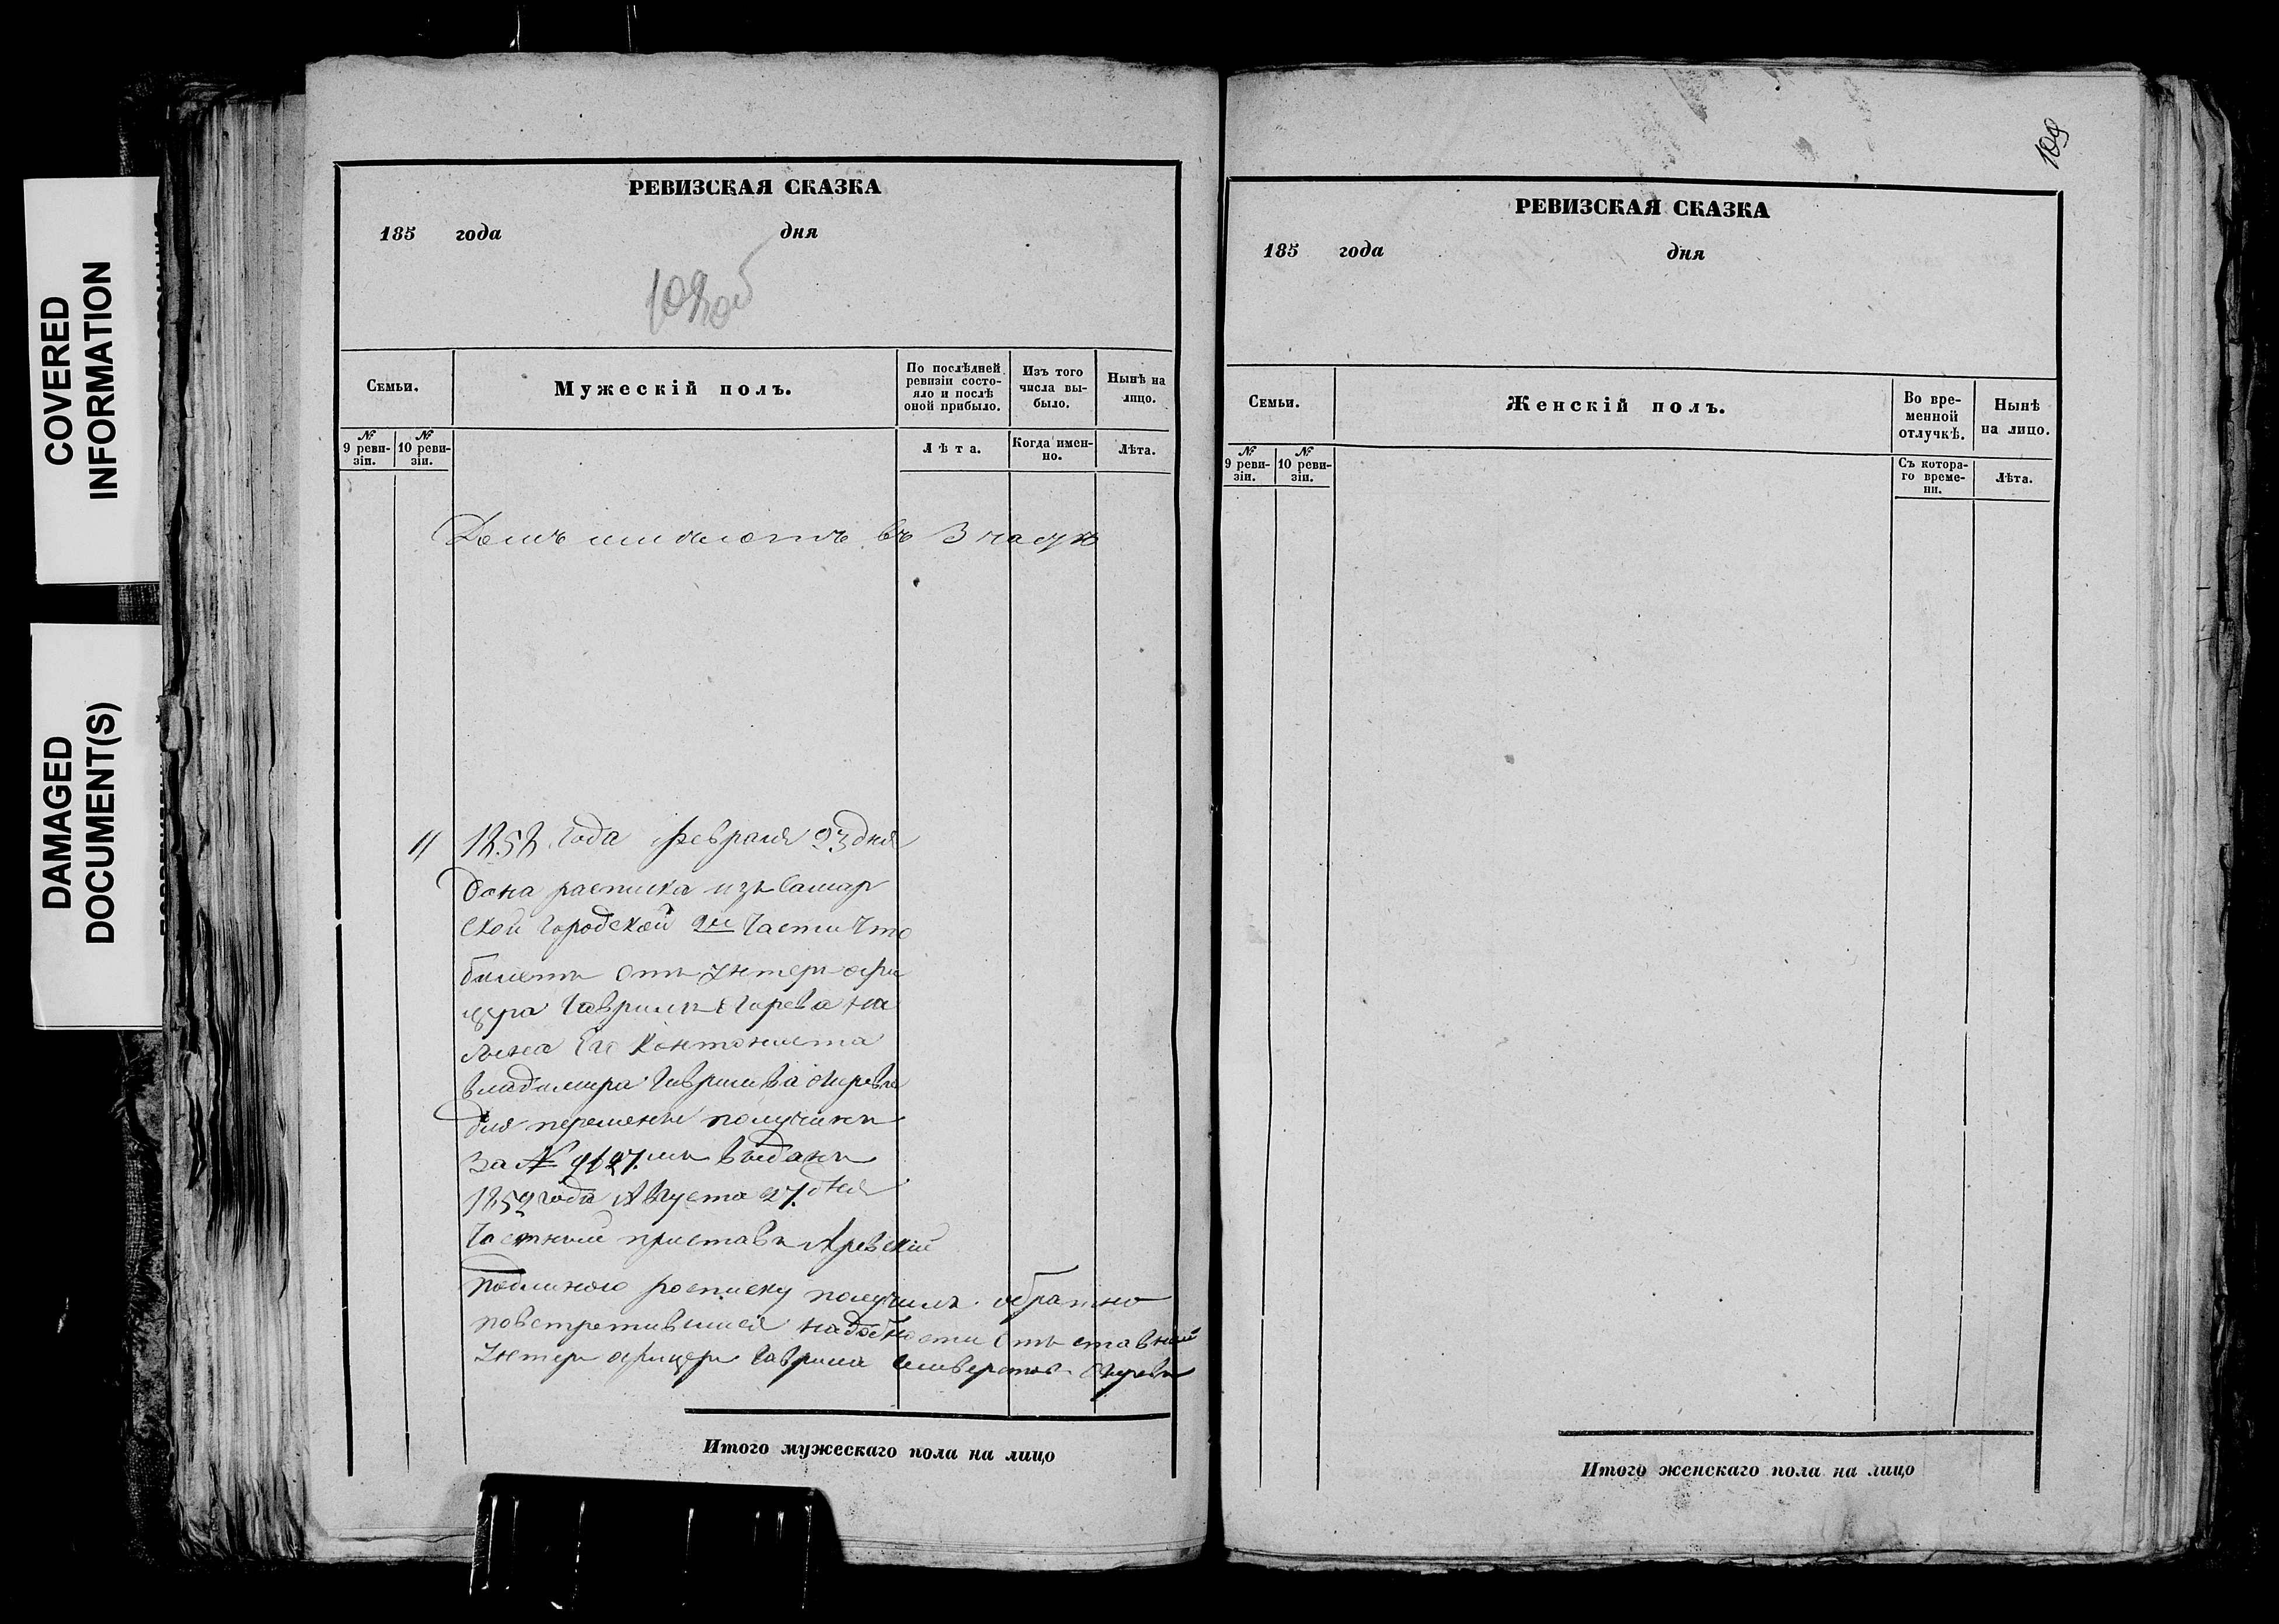 COVERED
INFORMATION
DAMAGED
DOCUMENT(S)
РЕВИЗСКАЯ СКАЗКА
185 года дня
108об
Семьи.
Мужескій полъ.
По послѣдней
ревизіи состо-
яло и послѣ
оной прибыло.
Изъ того
числа вы-
было.
Нынѣ на
лицо.
№
9 реви-
зіи.
№
10 реви-
зіи.
Лѣта.
Когда имен-
но.
Лѣта.
Домъ имѣютъ въ 3 части
11
1858 года февраля 23 дня
дана расписка изъ Самар
ской городской 2й части что
билетъ отъ унтеръ офи
цера Гаврилы Егорева на
сына Его Кантониста
владимира Гаврилова
для перемены полученъ
за № 9127.мъ выданъ
1852 года Августа 27. дня
Частный приставъ
подлиною росписку получилъ обратно
повстретившися надобности отъ ставной
Унтеръ офицеръ Гаврила
Итого мужескаго пола на лицо
109
РЕВИЗСКАЯ СКАЗКА
185 года дня
Семьи.
Женскій полъ.
Во вре-
менной
отлучкѣ.
Нынѣ
на лицо.
№
9 реви-
зіи.
№
10 реви-
зіи.
Съ котора-
го време-
ни.
Лѣта.
Итого женскаго пола на лицо